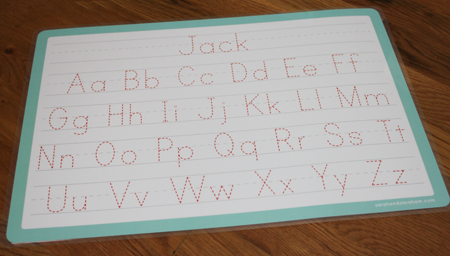 Jack
Aa Bb Cc Dd Ee Ff
Gg Hh Ii Jj Kk Ll Mm
Nn Oo Pp Qq Rr Ss Tt
Uu Vv Ww Xx Yy Zz